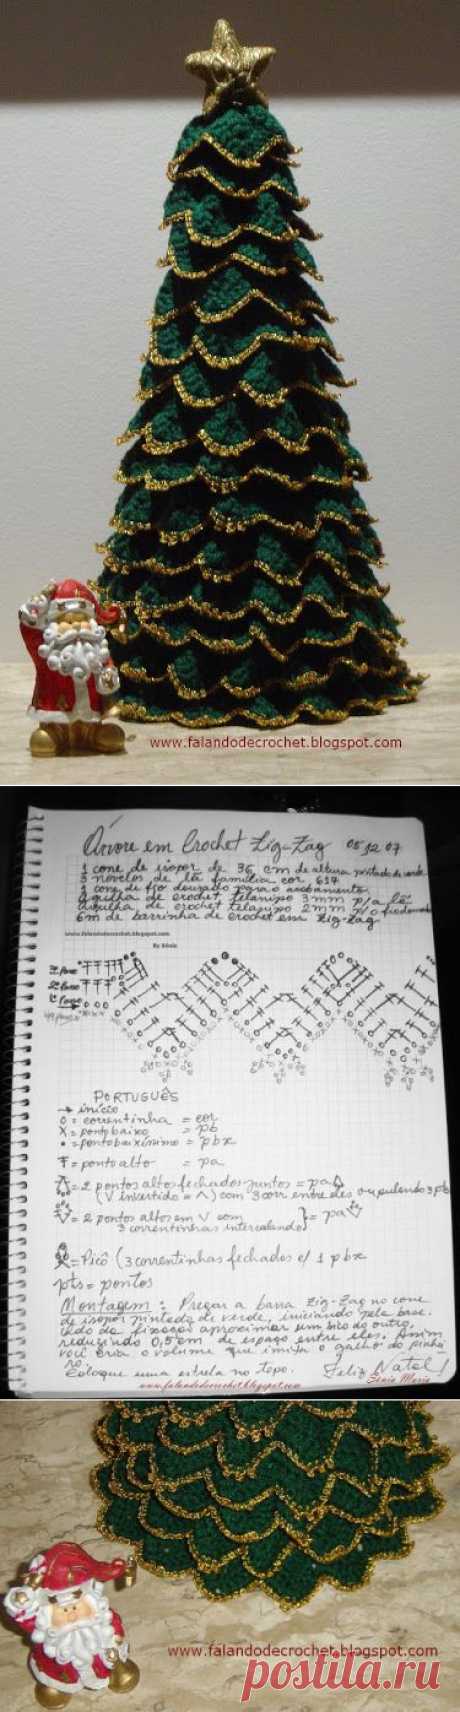 www.falandodecrochet.blogspot.com
Árvore em Crochet Zig-Zag 05.12.07
1 cone de isopor de 36 cm de altura pintado de verde
3 novelos de lã família cor 617
1 cone de fio dourado para o acabamento
agulha de crochet 3mm p/a lã
agulha de crochet 2mm p/o fio dourado
6m de barrinha de crochet em zig-zag
www.falandodecrochet.blogspot.com
By Sônia
3ª carr
2ª carr
1ª carr
PORTUGUÊS
→ início
o = correntinha = cor
x = ponto baixo = pb
• = ponto baixíssimo = pbx
= ponto alto = pa
= 2 pontos altos fechados juntos = pa
(V invertido = Λ) com 3 corr entre eles ou pulando 3 pb
= 2 pontos altos em V com
3 correntinhas intercalando = pa
= Picô (3 correntinhas fechadas c/ 1 pbx
pts = pontos
Montagem: Pregar a barra zig-zag no cone
de isopor pintado de verde, iniciando pela base.
lado da fixação aproximar um bico do outro,
reduzindo 0,5 cm de espaço entre eles. Assim
você cria o volume que imita o galho do pinhei
ro.
Coloque uma estrela no topo. Feliz Natal!
www.falandodecrochet.blogspot.com Sônia Maria
www.falandodecrochet.blogspot.com
postila.ru